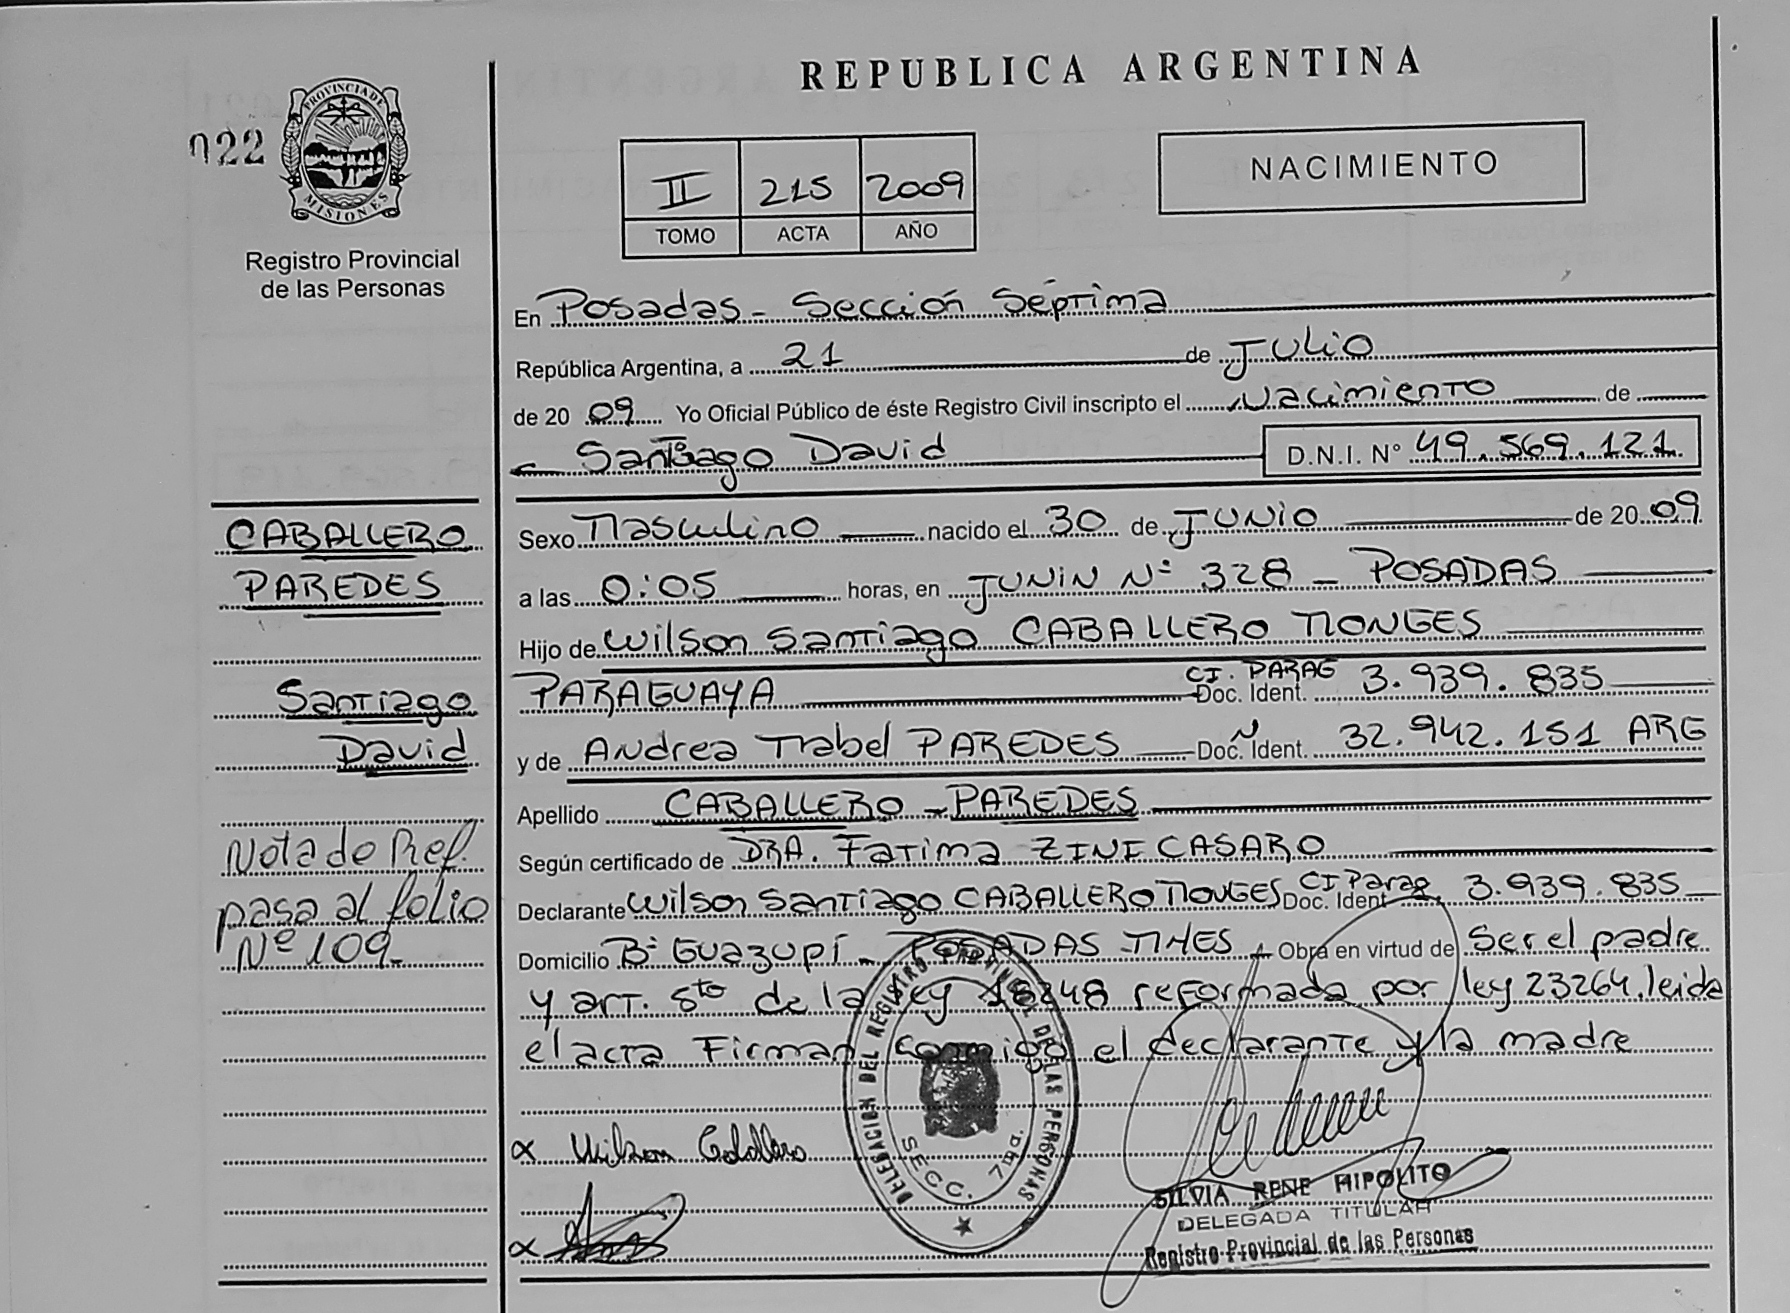 REPUBLICA ARGENTINA
022
PROVINCIA DE
MISIONES
Registro Provincial
de las Personas
II 215 2009
TOMO ACTA AÑO
NACIMIENTO
En Posadas - Sección Séptima
República Argentina, a 21 de Julio
de 20 09 Yo Oficial Público de éste Registro Civil inscripto el Nacimiento de
Santiago David D.N.I. N° 49.569.121.
CABALLERO
PAREDES
Santiago
David
Nota de Ref.
pasa al folio
Nº 109.
Sexo Masculino nacido el 30 de Junio de 20 09
a las 0:05 horas, en JUNIN N° 328 - POSADAS
Hijo de Wilson Santiago CABALLERO MONGES
PARAGUAYA CI. PARAG Doc. Ident. 3.939.835
y de Andrea Mabel PAREDES Doc. Ident. 32.942.151 ARG
Apellido CABALLERO - PAREDES
Según certificado de DRA. Fatima ZINI CASARO
Declarante Wilson Santiago CABALLERO MONGES CI Parag Doc. Ident 3.939.835
Domicilio B° Guazupí - POSADAS Obra en virtud de Ser el padre
y art. 5to de la ley 18248 reformada por ley 23264. leida
el acta Firman conmigo el declarante y la madre
x Wilson Caballero
x
DELEGACION DEL REGISTRO PROVINCIAL DE LAS PERSONAS
SECC. 7ma.
SILVIA RENE HIPOLITO
DELEGADA TITULAR
Registro Provincial de las Personas